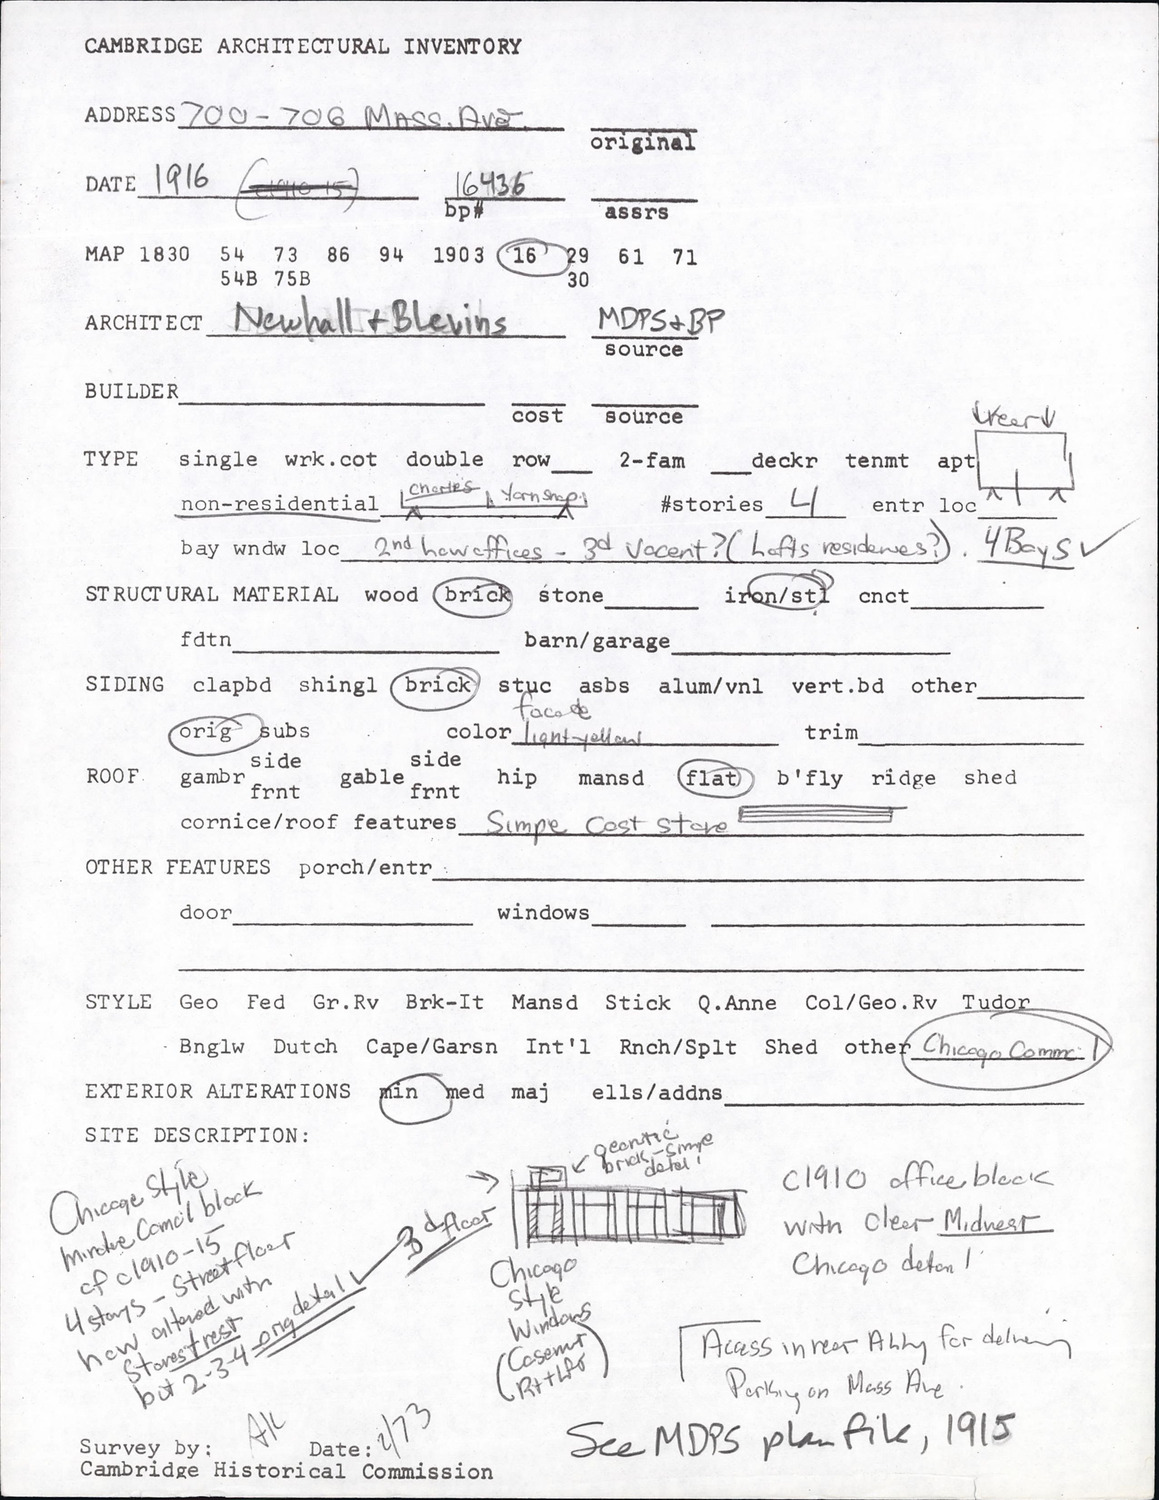 CAMBRIDGE ARCHITECTURAL INVENTORY
ADDRESS 700-706 Mass. Ave
original
DATE 1916 (c1910-15) 16436
bp# assrs
MAP 1830 54 73 86 94 1903 16 29 61 71
54B 75B 30
ARCHITECT Newhall + Blevins MDPS+BP
source
BUILDER
cost source
↓rear↓
TYPE single wrk.cot double row 2-fam deckr tenmt apt
non-residential Charlie's Yarn Shop #stories 4 entr loc
bay wndw loc 2nd how offices - 3d Vacent? (Lofts residenes?). 4 Bays ✓
STRUCTURAL MATERIAL wood brick stone iron/stl cnct
fdtn barn/garage
SIDING clapbd shingl brick stuc asbs alum/vnl vert.bd other
facade
orig subs color light yellow trim
side side
ROOF gambr gable hip mansd flat b'fly ridge shed
frnt frnt
cornice/roof features Simpe Cast stone
OTHER FEATURES porch/entr
door windows
STYLE Geo Fed Gr.Rv Brk-It Mansd Stick Q.Anne Col/Geo.Rv Tudor
Bnglw Dutch Cape/Garsn Int'l Rnch/Splt Shed other Chicago Commc'l
EXTERIOR ALTERATIONS min med maj ells/addns
SITE DESCRIPTION:
Chicago Style
Comcil block
of c1910-15
4 storys - Street floor
now altered with
Stores + rest
but 2-3-4 orig detail
3d floor
brick-simpe
detail
Chicago
Style
Windows
(Casemt
Rt + Lft)
c1910 office block
with Clear Midwest
Chicago detail
Access in rear Alley for delivery
Parking on Mass Ave.
See MDPS plan file, 1915
Survey by: AK Date: 2/73
Cambridge Historical Commission